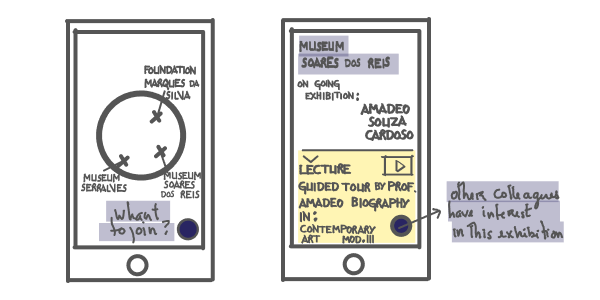 FOUNDATION
MARQUES DA
SILVA
MUSEUM
SERRALVES
MUSEUM
SOARES
DOS REIS
Whant
to join?
MUSEUM
SOARES DOS REIS
ON GOING
EXHIBITION:
AMADEO
SOUZA
CARDOSO
LECTURE
GUIDED TOUR BY PROF.
AMADEO BIOGRAPHY
IN:
CONTEMPORARY
ART MOD.III
other colleagues
have interest
in this exhibition